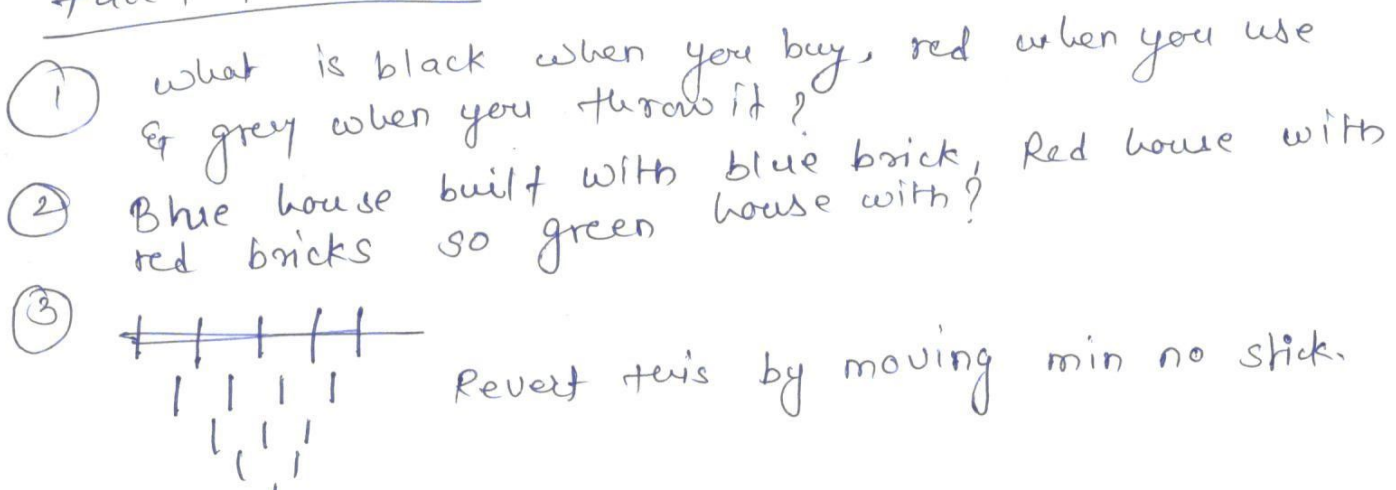 ① what is black when you buy, red when you use
& grey when you throw it ?
② Blue house built with blue brick, Red house with
red bricks so green house with ?
③
Revert this by moving min no stick.